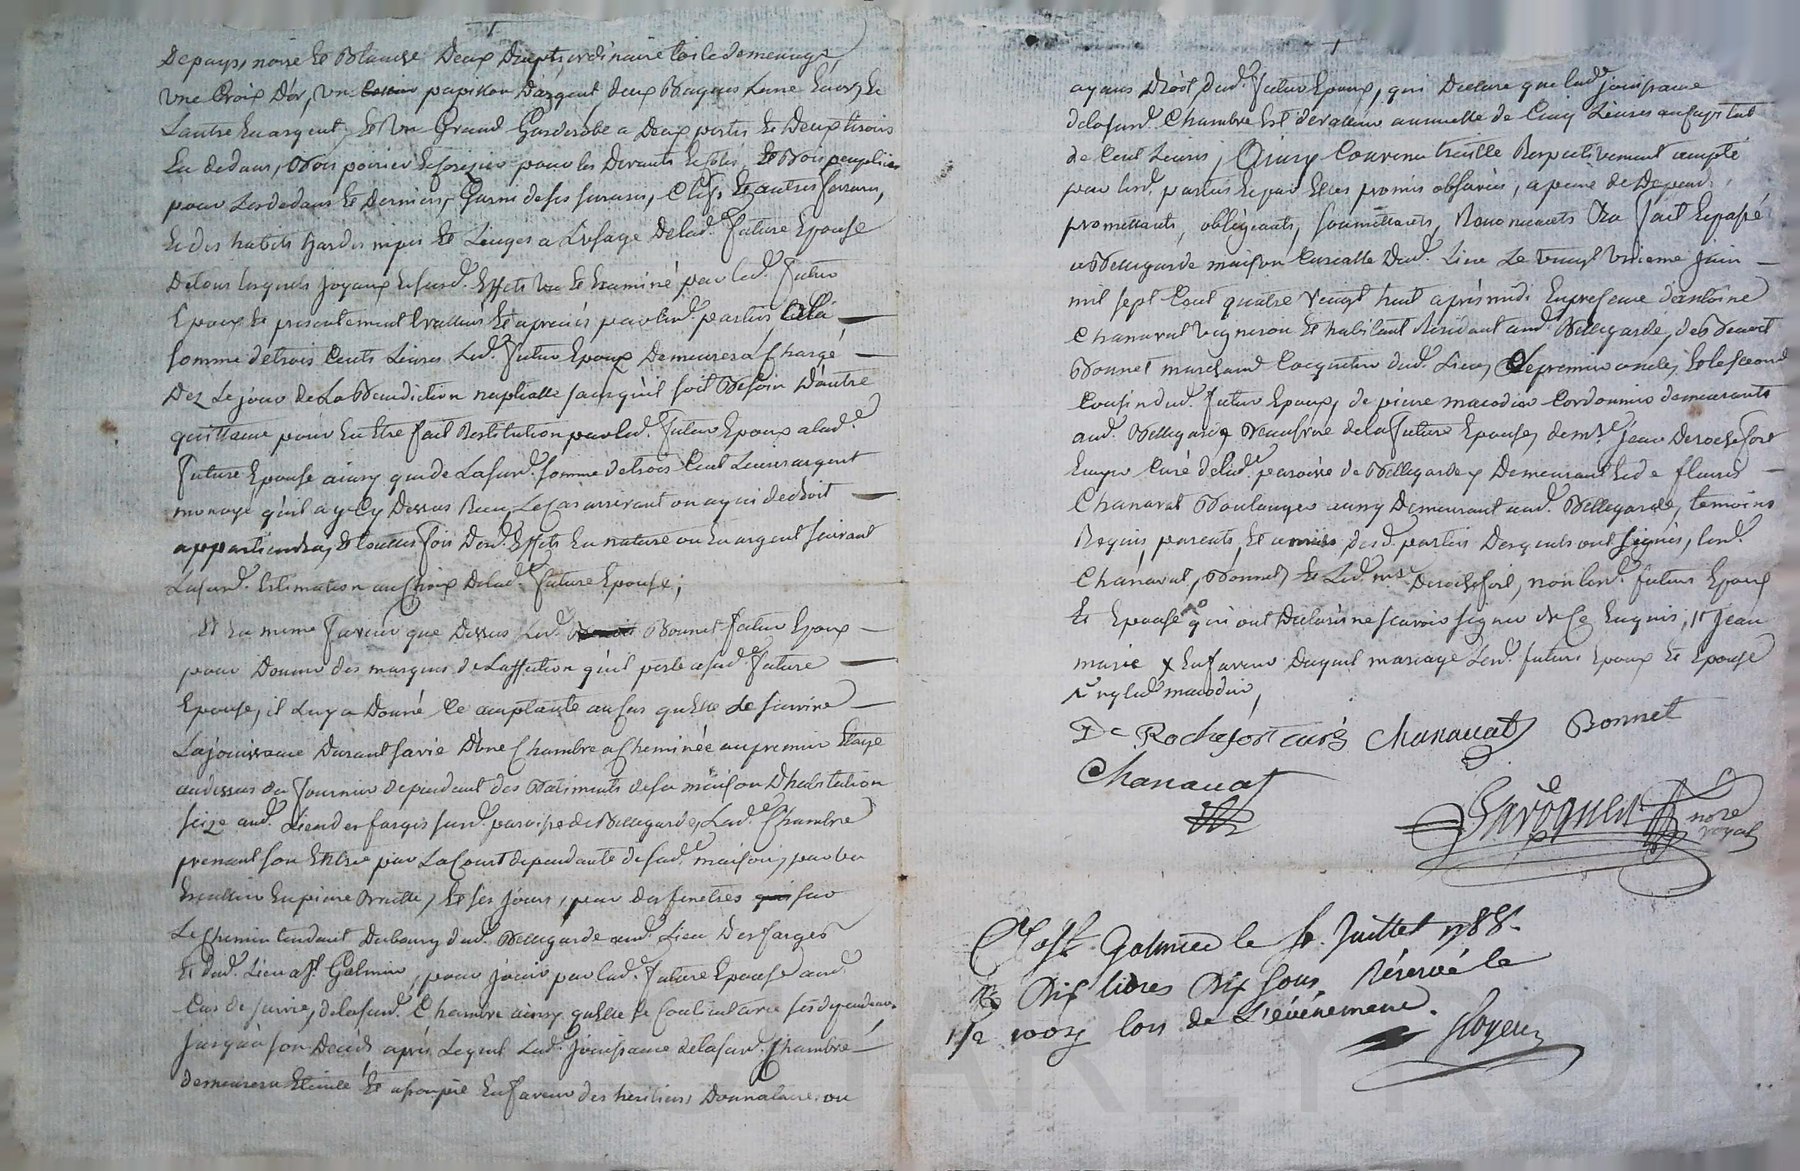 Depays, noire Et Blanche Deux Draps, ordinaire toile de menage,
Une Croix D'or, un papillon D'argent, deux Bagues Lune En or, Et
Lautre En argent, Et Un Grand Garderobe a Deux portes Et Deux tiroirs
En dedans, Bois poirier Et serizier pour les Devants Et Bois peuplier
pour Les dedans Et Derniers, Garni de ses serrures, Clefs, Et autres ferrures,
Et des habits hardes nipes Et Linges a L'usage De lad.e future Epouse
De tous lesquels joyaux Et surd. Effets Vu Et Examiné par led. futur
Epoux Et presentement Evallués Et apreciés par lesd. parties, à la
somme de trois Cents Livres Led. futur Epoux Demeurera Chargé
Dez Le jour de La Benediction nuptialle sans qu'il soit Besoin D'autre
quittance pour En Etre fait Restitution par led. futur Epoux a lad.e
future Epouse ainsy que de La surd. somme de trois Cent Livres argent
monoyé qu'il a y Cy Dessus Reçu, Le Cas arrivant ou a qui de droit
appartiendra, Et toutes fois Desd. Effets En nature ou En argent suivant
La surd. Estimation au Choix De lad.e future Epouse;
Et En meme faveur que Dessus Led. Bonnet futur Epoux
pour Donner des marques de L'affection qu'il porte a sad. future
Epouse, il Luy a Donné Ce acceptante au Cas qu'Elle Le survive
La jouissance Durant sa vie D'une Chambre a Cheminée au premier Etage
audessus du fournier dependant des Batiments de sa maison D'habitation
size aud. Lieu des farges surd. paroisse de Bellegarde, Lad.e Chambre
prenant son Entrée par La Court dependante de sad.e maison, par un
Escallier En pierre Brutte, Et ses jours, par des fenetres sur
Le Chemin tendant Du bourg dud. Bellegarde aud. Lieu Des farges
Et dud. Lieu a St. Galmier, pour jouir par lad. future Epouse aud.
Cas de survie, de la surd. Chambre ainsy qu'Elle Se Contient avec ses dependances
jusqu'a son Decès après Lequel Lad. jouissance de la surd. Chambre
demeurera Eteinte Et assoupie En faveur des heritiers Donnataires ou
ayans Droit dud. futur Epoux, qui Declare que lad.e jouissance
de la surd. Chambre Est de valleur annuelle de Cinq Livres au Capital
de Cent Livres; Ainsy Convenu Respectivement accepté
par lesd. parties Et par Elles promis observer, a peine de Depens,
promettants, obligeants, soumettants, Renonceants &ca fait Et passé
a Bellegarde maison Curialle Dud. Lieu Le vingt Unieme juin
mil sept Cent quatre Vingt huit après midi En presence d'antoine
Chanavat Vigneron Et habitant Residant aud. Bellegarde, de Benoit
Bonnet marchand Coquetier dud. Lieu, Le premier oncle, Et le second
Cousin dud. futur Epoux, de pierre macodier Cordonnier demeurants
aud. Bellegarde Beaufrere de la future Epouse, de mr.e jean Derochefort
Curé delad.e paroisse de Bellegarde y Demeurant Et de fleuri
Chanavat Boulanger aussy Demeurant aud. Bellegarde, temoins
Requis, parents, Et amis desd. parties Desquels ont signés, lesd.
Chanavat, Bonnet, Et Led. mre. Derochefort, non lesd. futurs Epoux
Et Epouse qui ont Declaré ne scavoir signer de Ce Enquis, jean
marie x En faveur Duquel mariage Lesd. futurs Epoux Et Epouse
ny led. macodier,
De Rochefort curé Chanavat Bonnet
Chanavat
nore
royal
St. Galmier le Juillet 1788.
R. dix livres dix sous, Réservé le
lors de L'événement.